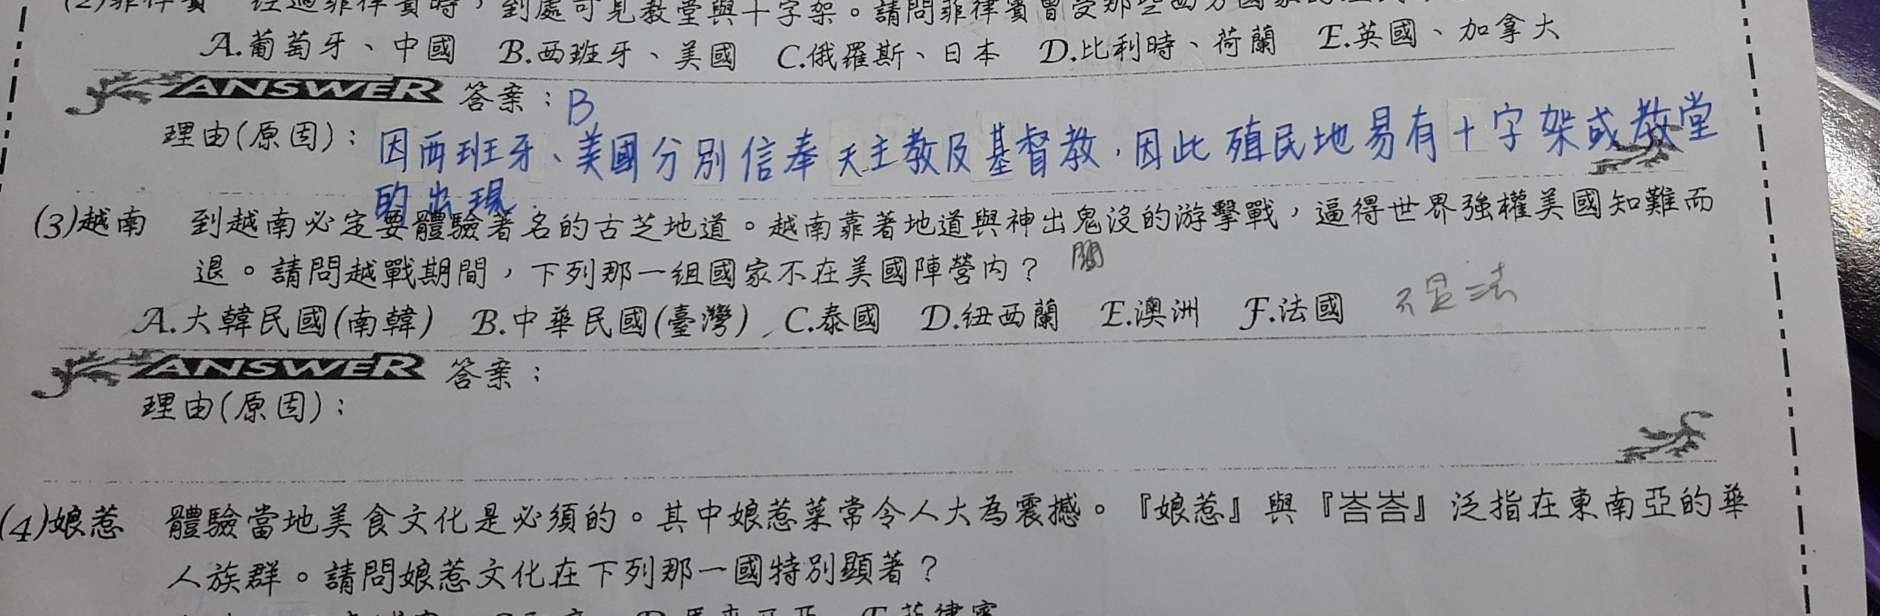 (2)菲律賓 經過菲律賓時，到處可見教堂與十字架。請問菲律賓曾受那些西方國家的
A.葡萄牙、中國 B.西班牙、美國 C.俄羅斯、日本 D.比利時、荷蘭 E.英國、加拿大
ANSWER 答案：B
理由(原因)：因西班牙、美國分別信奉天主教及基督教，因此殖民地易有十字架或教堂
的出現
(3)越南 到越南必定要體驗著名的古芝地道。越南靠著地道與神出鬼沒的游擊戰，逼得世界強權美國知難而
退。請問越戰期間，下列那一組國家不在美國陣營內？
A.大韓民國(南韓) B.中華民國(臺灣) C.泰國 D.紐西蘭 E.澳洲 F.法國 不是法
ANSWER 答案：
理由(原因)：
(4)娘惹 體驗當地美食文化是必須的。其中娘惹菜常令人大為震撼。『娘惹』與『峇峇』泛指在東南亞的華
人族群。請問娘惹文化在下列那一國特別顯著？